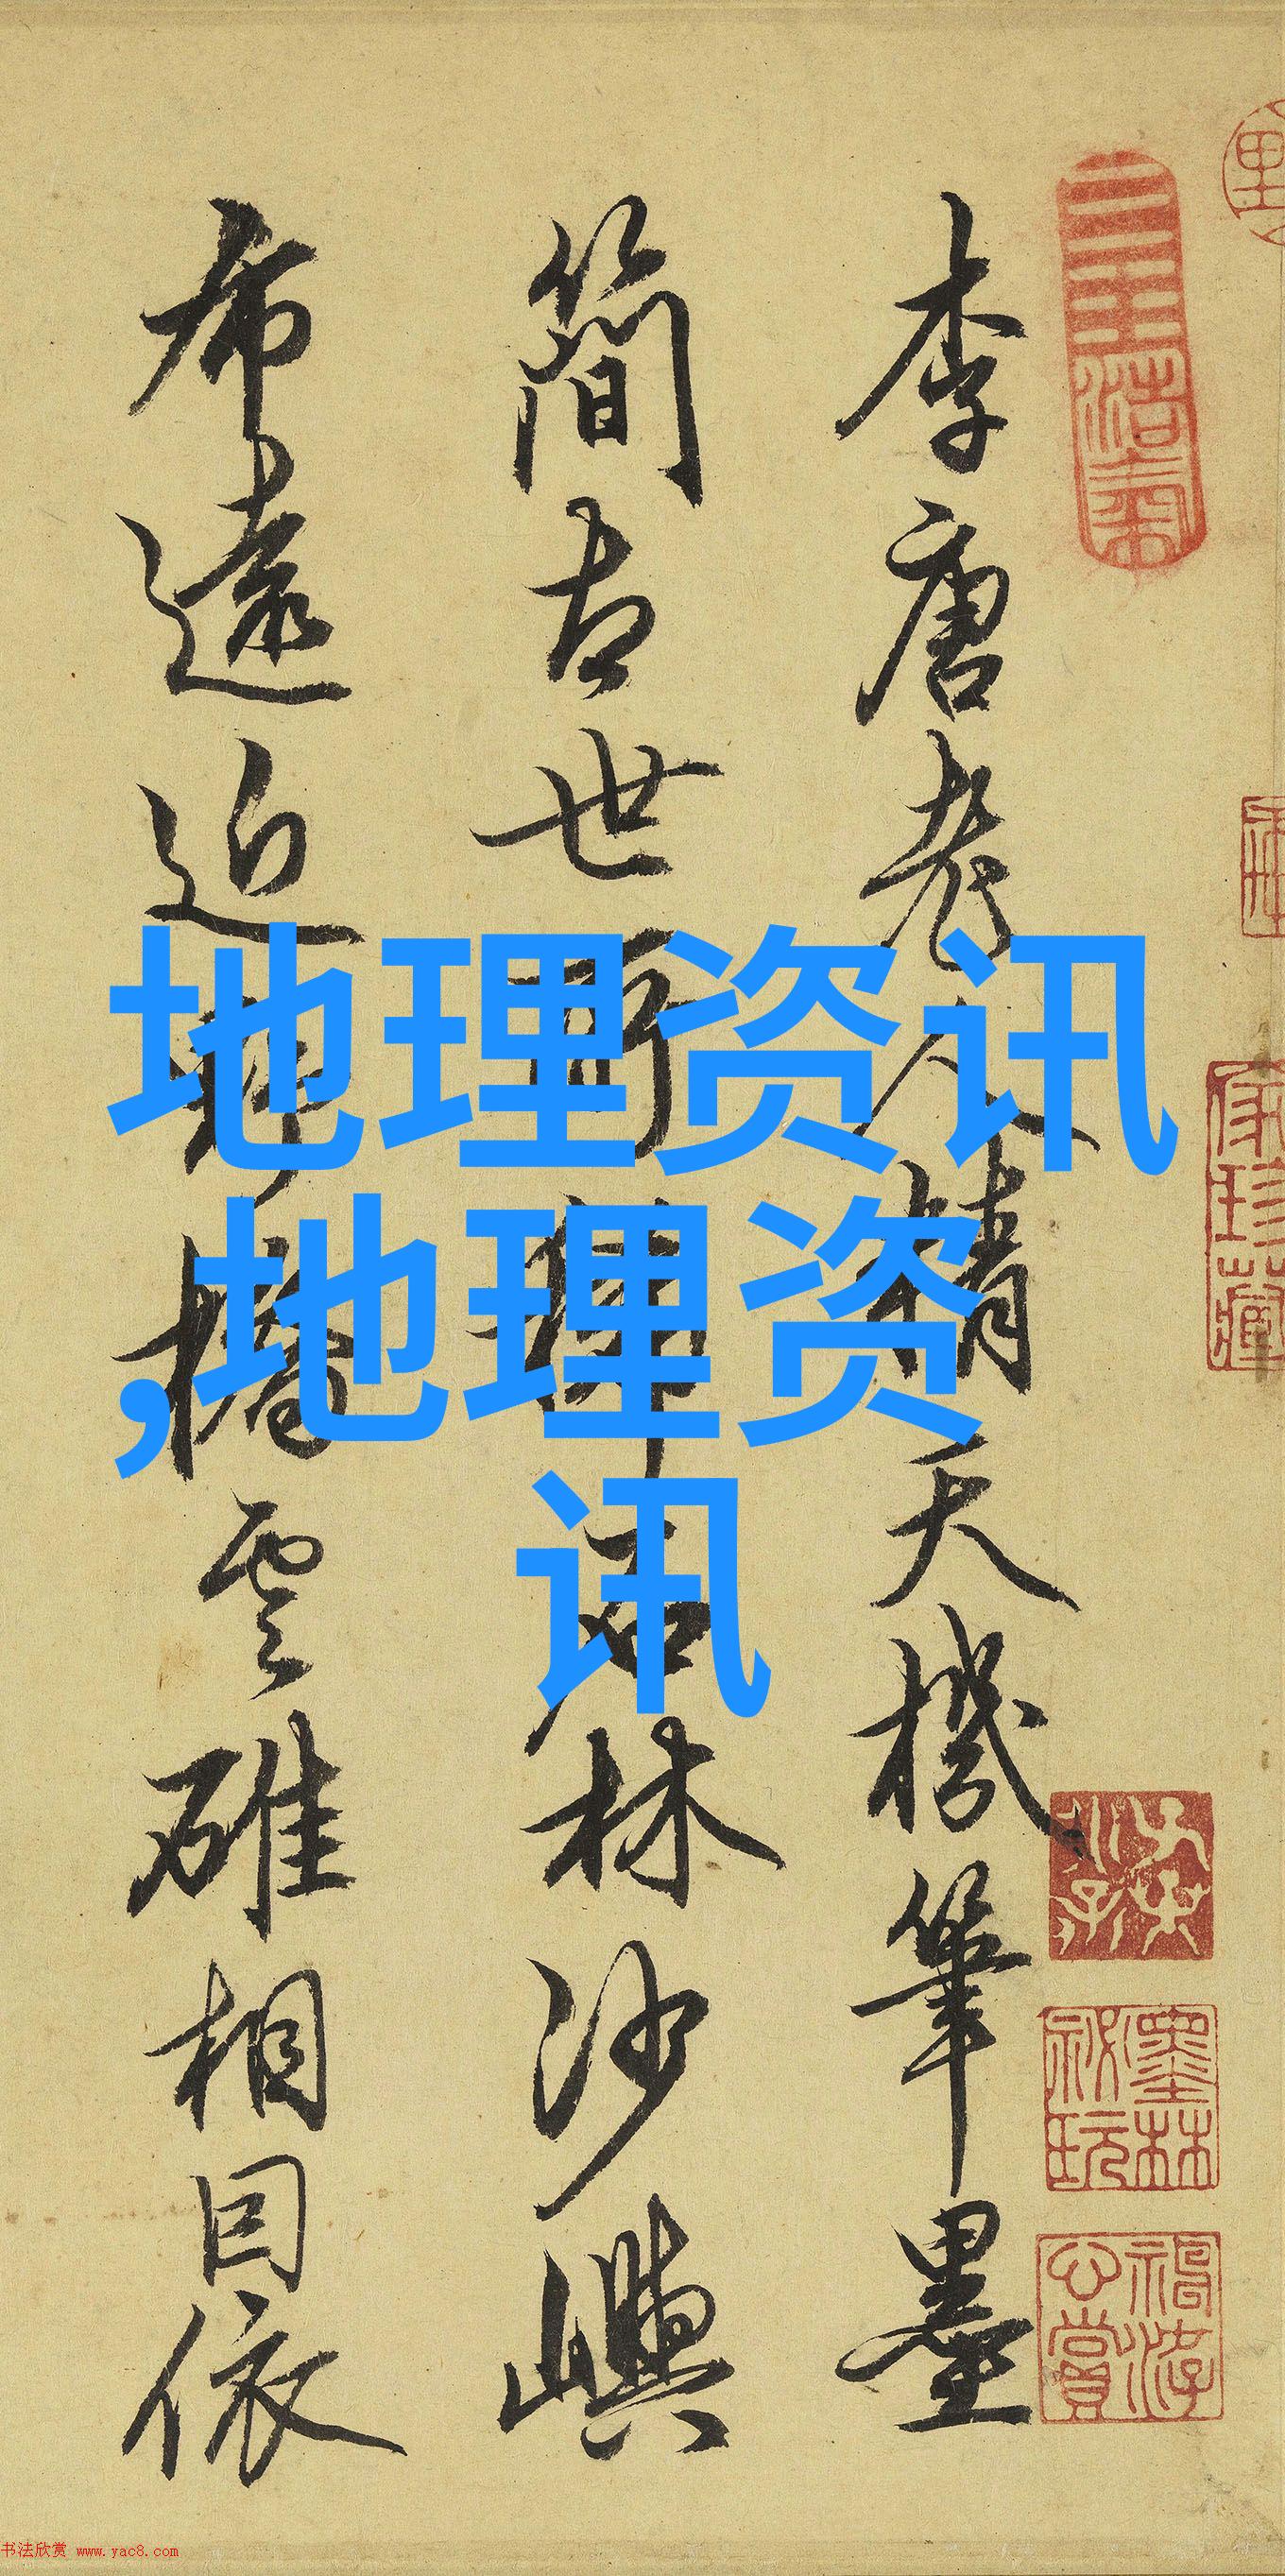 李唐老人精天機筆墨
簡古世所稀石林沙嶼
布遠近軒楹雲碓相因依
地理资讯
,地理资
讯
书法欣赏 www.yac8.com